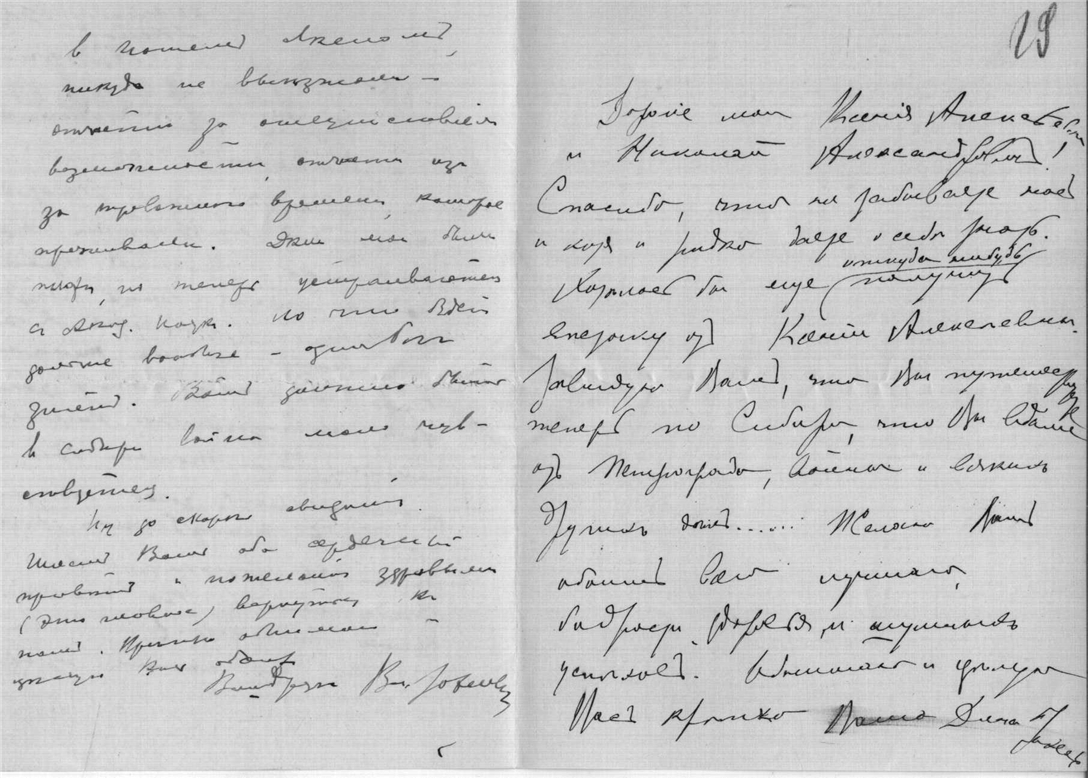 в нашем
никуда не выезжали –
отчасти за отсутствием
возможности, отчасти из
за тревожного времени, которое
переживаем. Дети мои были
но теперь устраиваются
в Акад. Наук. Но что будет
дальше вообще – один бог
знает. Вам должно быть
в Сибири война мало чув-
ствуется.
Ну до скорого свидания.
Шлем Вам оба сердечный
привет и пожелания здоровыми
(это главное) вернуться к
нам. Крепко обнимаю и
целую Вас обоих
Ваш друг
29
Дорогие мои Ксения Алексеевна
и Николай Александрович!
Спасибо, что не забываете нас
и хотя и редко даете о себе знать.
Хотелось бы еще откуда нибудь получить
от Ксении Алексеевны.
Завидую Вам, что Вы путешествуете
теперь по Сибири, что Вы вдали
от Петрограда, войны и всяких
других дел...... Желаю Вам
обоим всего лучшего,
бодрости, здоровья, и
успехов. Обнимаю и целую
Вас крепко Ваша